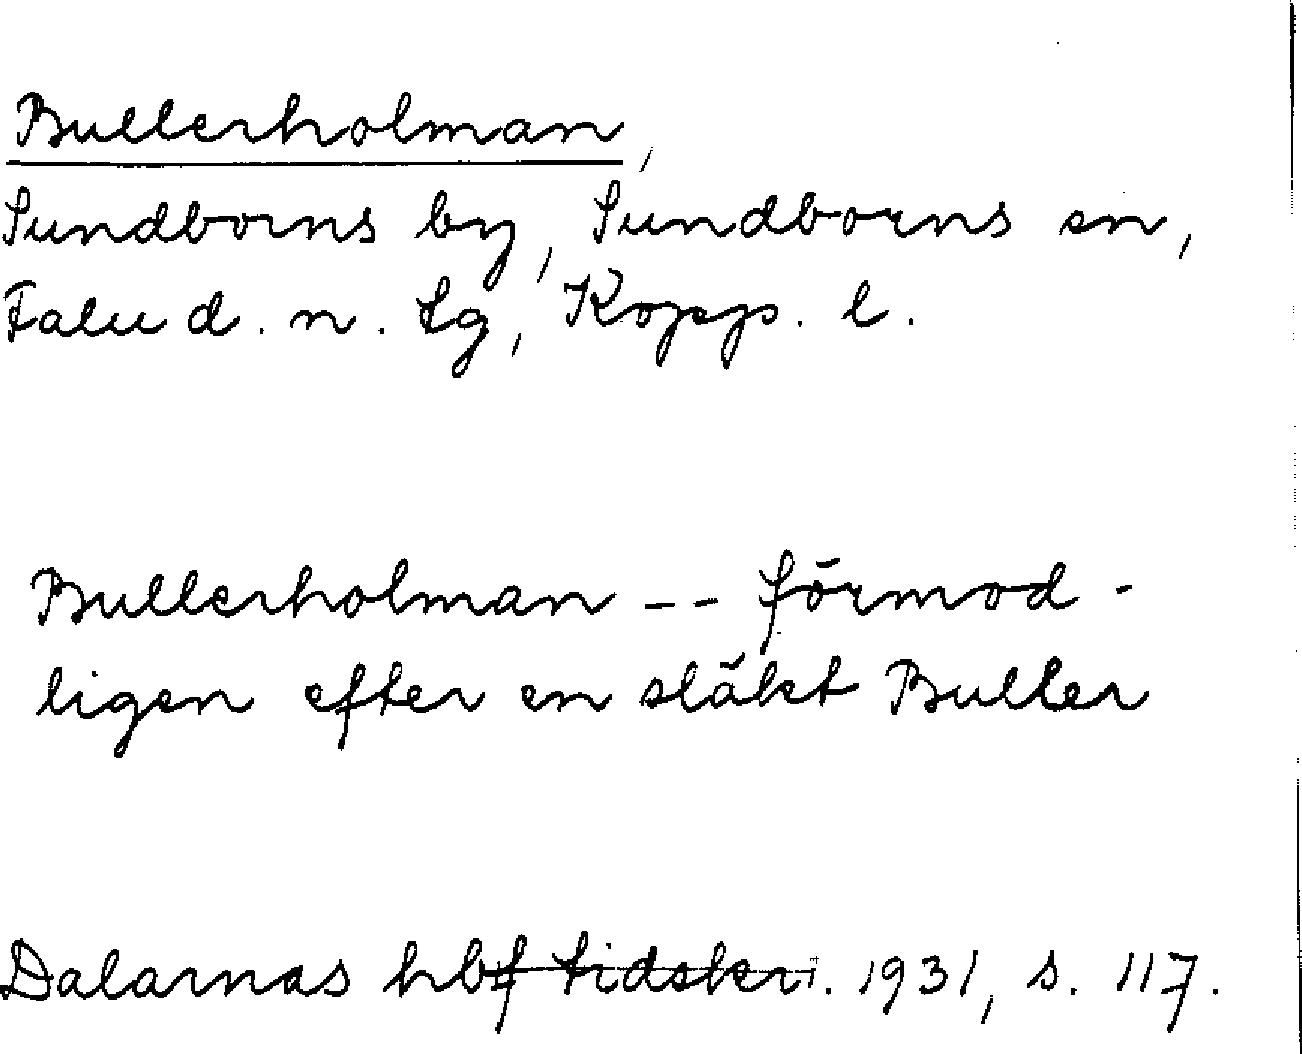 Bullerholman,
Sundborns by, Sundborns sn,
Falu d. n. tg, Kopp. l.
Bullerholman -- förmod-
ligen efter en släkt Buller
Dalarnas hbf tidskr. 1931, s. 117.